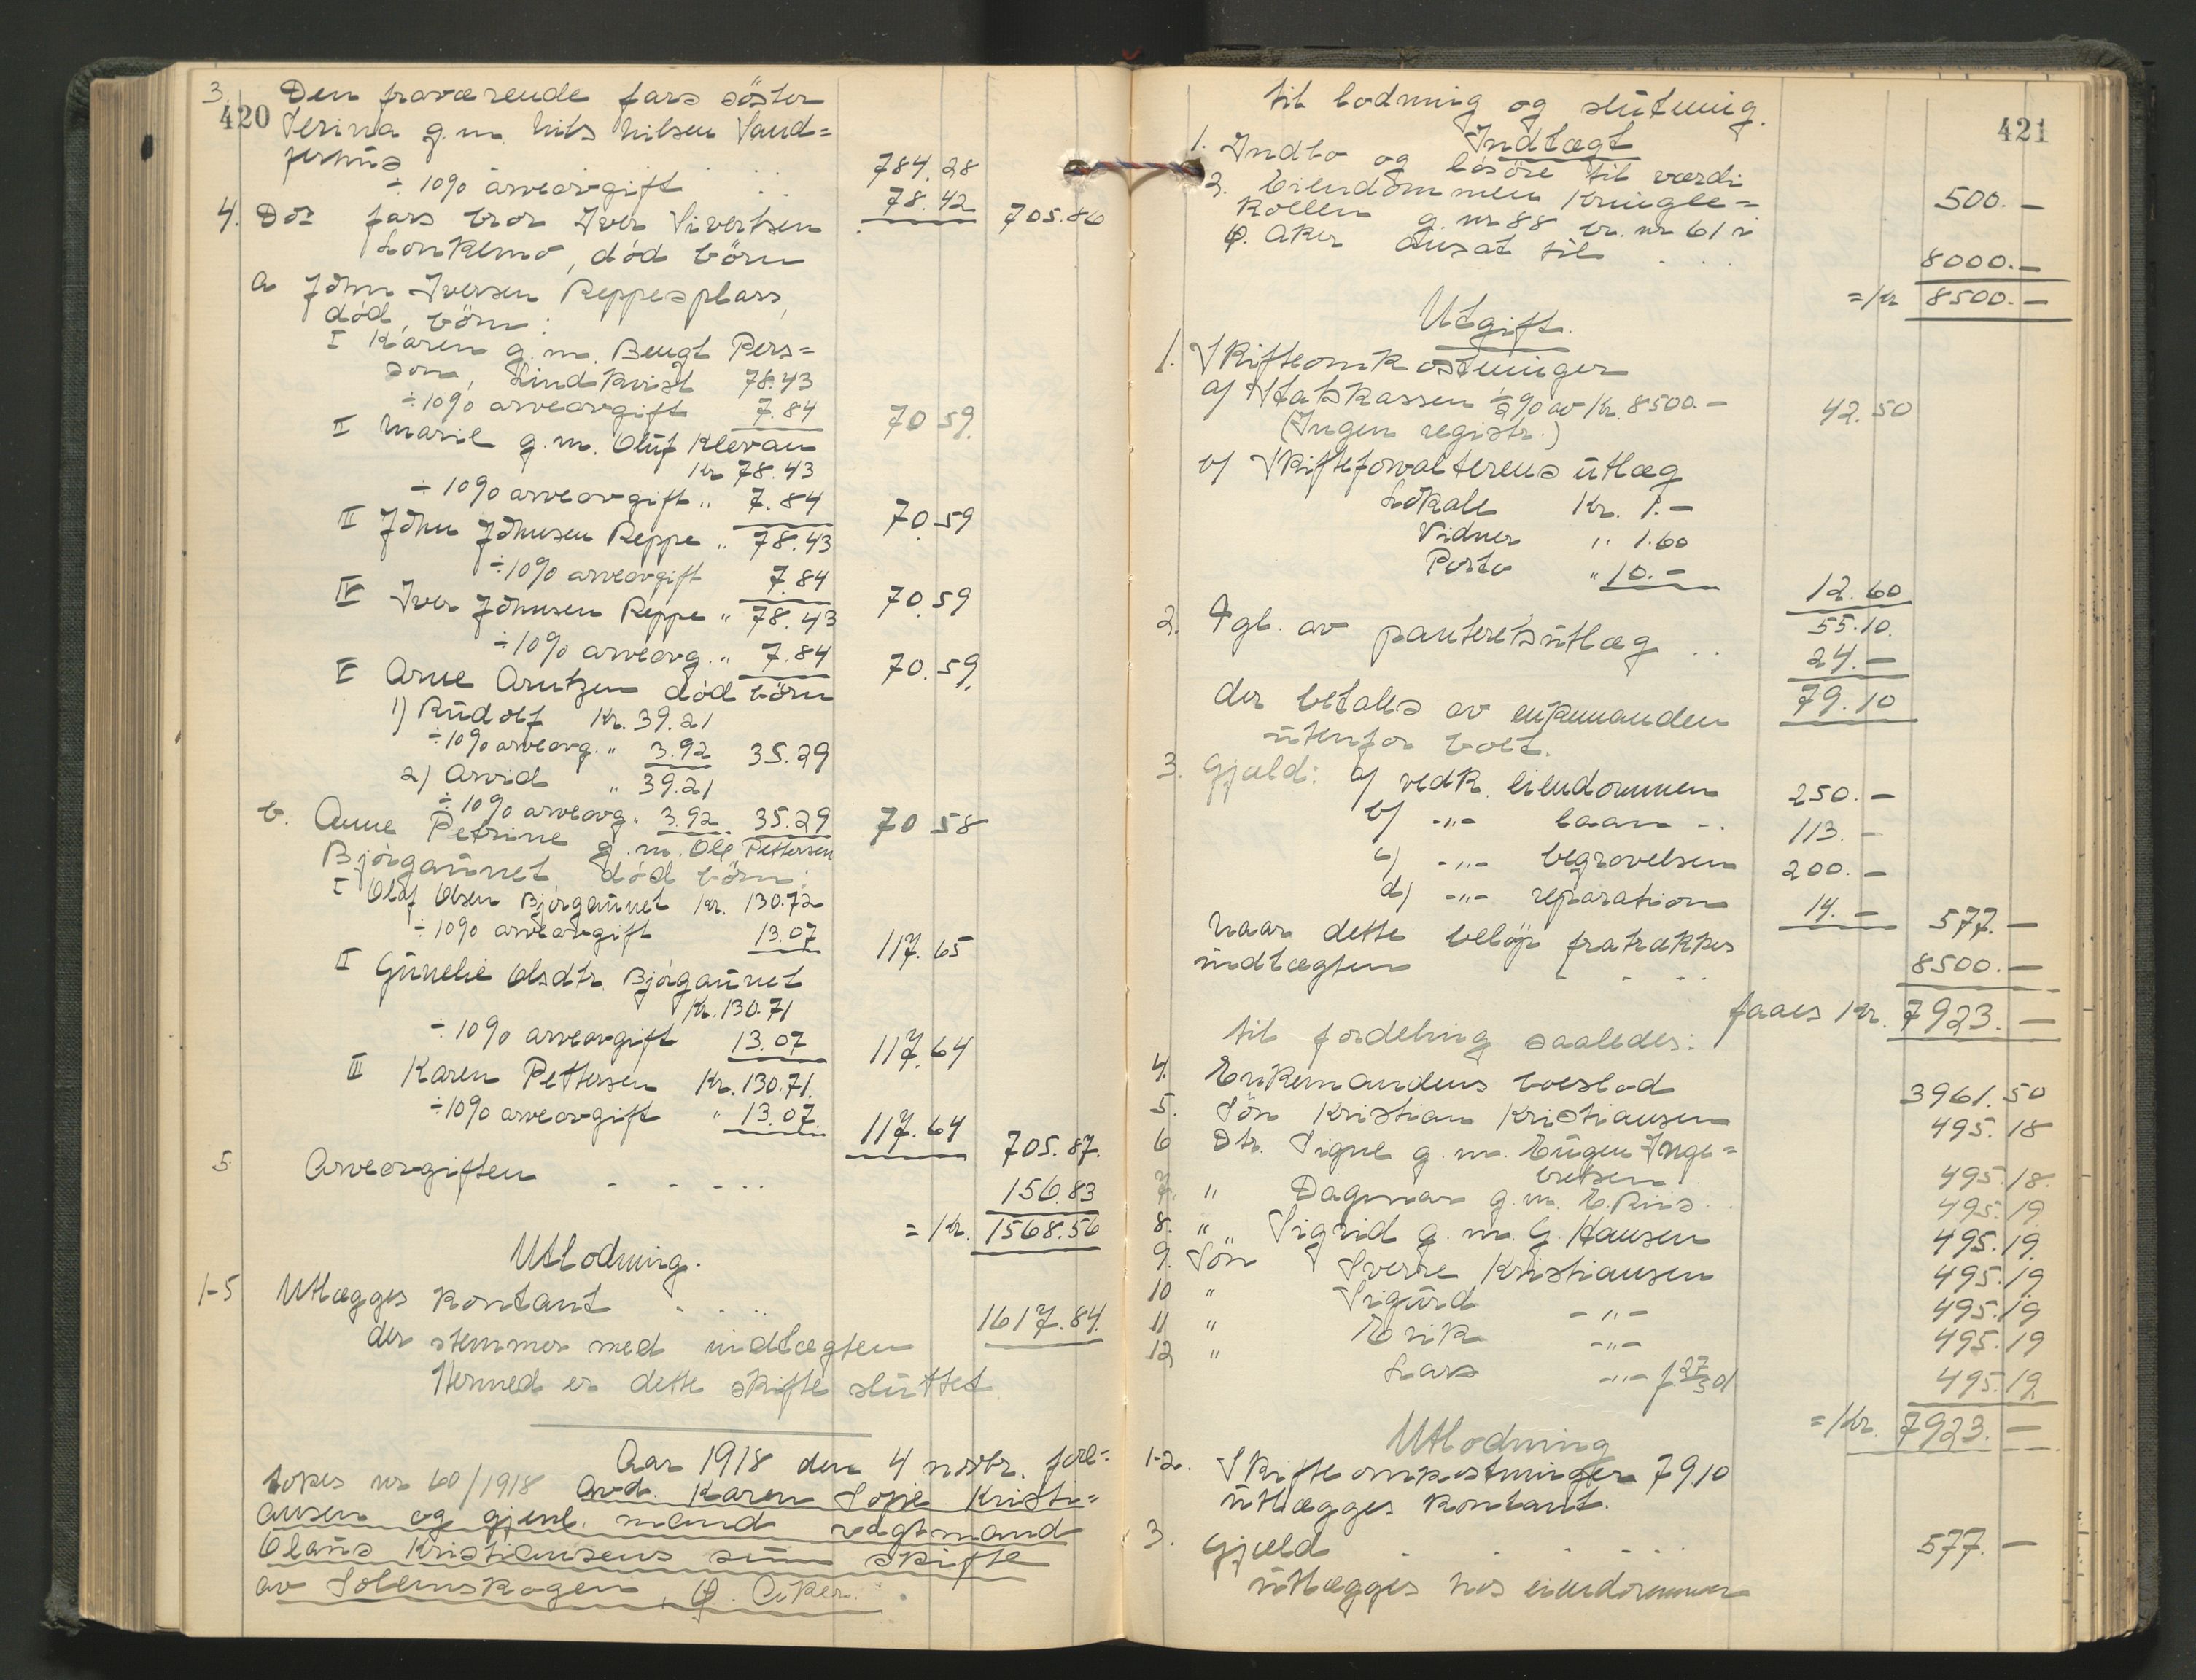 420
3. Den fraværende fars söster
Serina g.m. Nils Nilsen Sand=
fernüs . . . 784.28
÷ 10% arveavgift . . 78.42 705.86
4. Do= fars bror Iver Sivertsen
Lonkemo, död börn
a John Iversen Reppesplass,
död, börn:
I Karen g.m. Bengt Pers=
son, Lindkvist 78.43
÷10% arveavgift 7.84 70 59.
II Marie g.m. Oluf Klevan
Kr 78.43
÷ 10% arveavgift " 7.84 70.59
III John Johnsen Reppe " 78.43
÷10% arveavgift 7.84 70.59
IV Iver Johnsen Reppe " 78.43
÷10% arveavg. " 7.84 70.59.
V Arne Arntzen död börn
1) Rüdolf Kr. 39.21
÷10% arveavg. " 3.92 35.29
2) Arvid " 39.21
÷10% arveavg. " 3.92. 35.29 70 58
b. Anne Petrine g.m. Ole Pettersen
Bjørgaünet död börn:
I Olaf Olsen Bjørgaünet Kr. 130.72
÷ 10% arveavgift 13.07 117.65
II Günelie Olsdtr. Bjørgaünet
Kr. 130.71
÷ 10% arveavgift 13.07 117.64
III Karen Pettersen Kr. 130.71.
÷10% arveavgift " 13.07. 117.64 705.87.
5. Arveavgiften . . . . . 156.83
= Kr. 1568.56
Utlodning.
1-5 Utlægges kontant . . . . 1617.84.
der stemmer med indtægten
Hermed er dette skifte slüttet
Aar 1918 den 4 novbr. fore=
tokes nr 60/1918 avd. Karen Sofie Kristi=
ansen og gjenl. mand vagtmand
Olaüs Kristiansens sum skifte
av Solemskogen, Ø. Aker.
421
til lodning og slütning.
Indtægt
1. Indbo og lösöre til værdi 500.—
2. Eiendommen Kringle=
kollen g.nr 88 br. nr 61 i
Ø. Aker ansat til . . . 8000.—
= Kr 8500.—
Utgift.
1. Skifteomkostninger
a) Statskassen ½% av Kr. 8500.— 42.50
(Ingen registr.)
b) Skifteforvalterens ütlæg
Lokale Kr. 1.—
Vidner " 1.60
Porto " 10.— 12.60
55.10.
2. Tgl. av panteretsütlæg . . 24.—
79.10
der betales av enkemanden
ütenfor boet.
3. Gjæld: a) vedk. eiendommen 250.—
b) —"— laan . . 113.—
c) —"— begravelsen 200.—
d) —"— reparation 14.— 577.—
Naar dette belöp fratrækkes
indtægten . . . . 8500.—
faaes Kr. 7923.—
til fordeling saaledes:
4. Enkemandens boeslod 3961.50
5. Sön Kristian Kristiansen 495.18
6 Dtr. Signe g.m. Eügen Inge=
bretsen . 495.18.
7. " Dagmar g.m. E. Riis . . 495.19
8. " Sigrid g.m. G. Hansen 495.19.
9. Sön Sverre Kristiansen 495.19
10 " Sigürd —"— 495.19
11 " Erik —"— 495.19
12 " Lars —"— f 27/3 01 495.19.
= Kr. 7923.—
Utlodning
1-2. Skifteomkostninger 79.10
ütlægges kontant.
3. Gjæld . . . . . . 577.—
ütlægges hos eiendommen